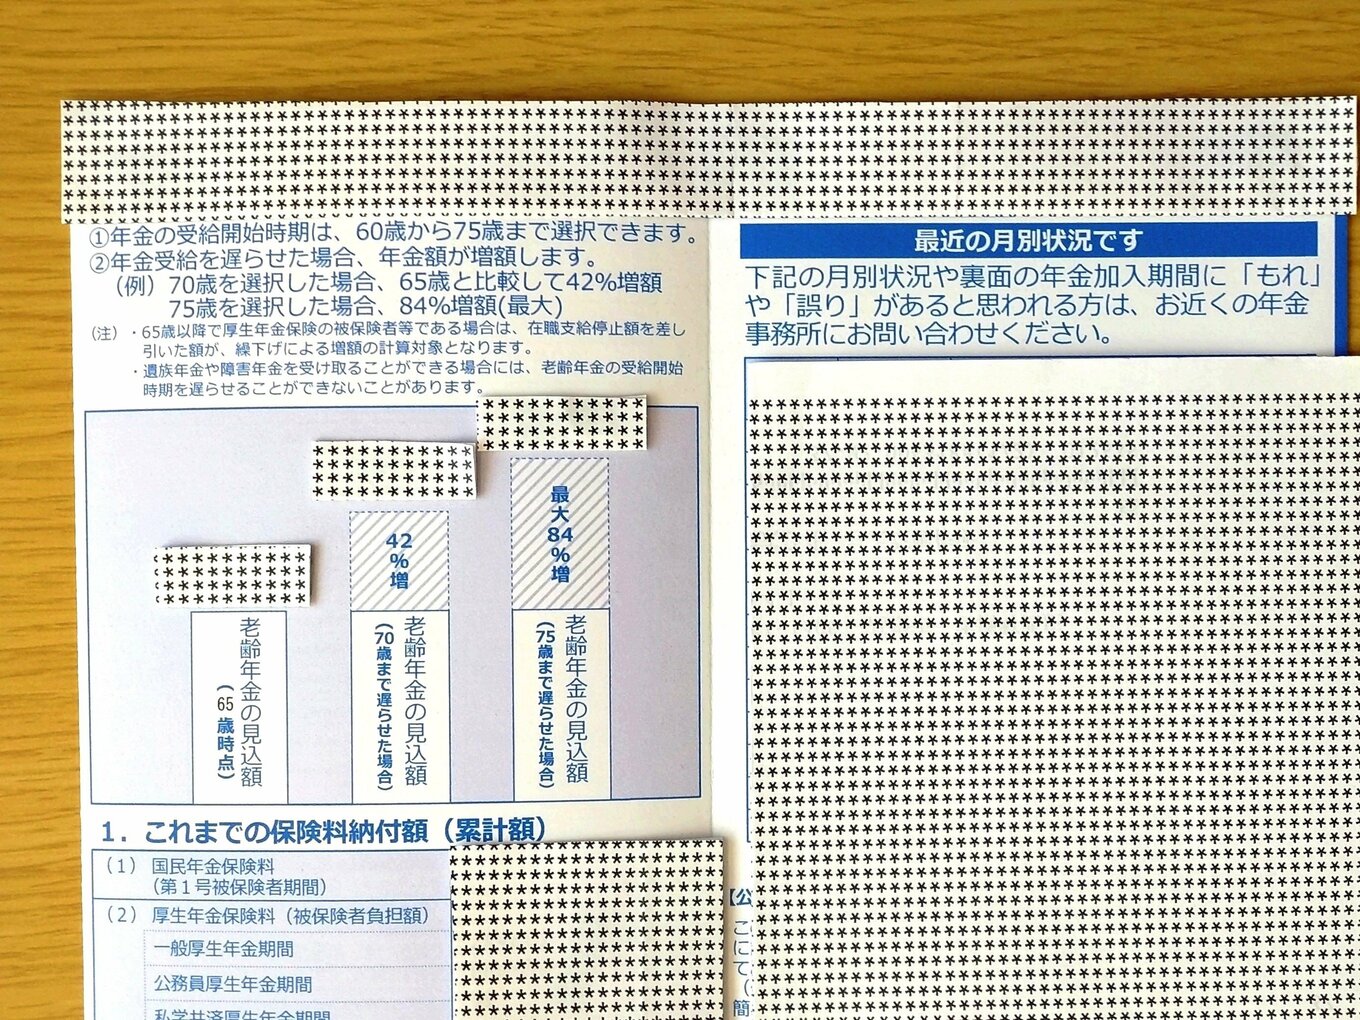 ①年金の受給開始時期は、60歳から75歳まで選択できます。
②年金受給を遅らせた場合、年金額が増額します。
（例）70歳を選択した場合、65歳と比較して42%増額
75歳を選択した場合、84%増額(最大)
（注）・65歳以降で厚生年金保険の被保険者等である場合は、在職支給停止額を差し
引いた額が、繰下げによる増額の計算対象となります。
・遺族年金や障害年金を受け取ることができる場合には、老齢年金の受給開始
時期を遅らせることができないことがあります。
老齢年金の見込額
（65歳時点）
42%増
老齢年金の見込額
（70歳まで遅らせた場合）
最大84%増
老齢年金の見込額
（75歳まで遅らせた場合）
1．これまでの保険料納付額（累計額）
（1）国民年金保険料
（第１号被保険者期間）
（2）厚生年金保険料（被保険者負担額）
一般厚生年金期間
公務員厚生年金期間
私学共済厚生年金期間
最近の月別状況です
下記の月別状況や裏面の年金加入期間に「もれ」
や「誤り」があると思われる方は、お近くの年金
事務所にお問い合わせください。
【公